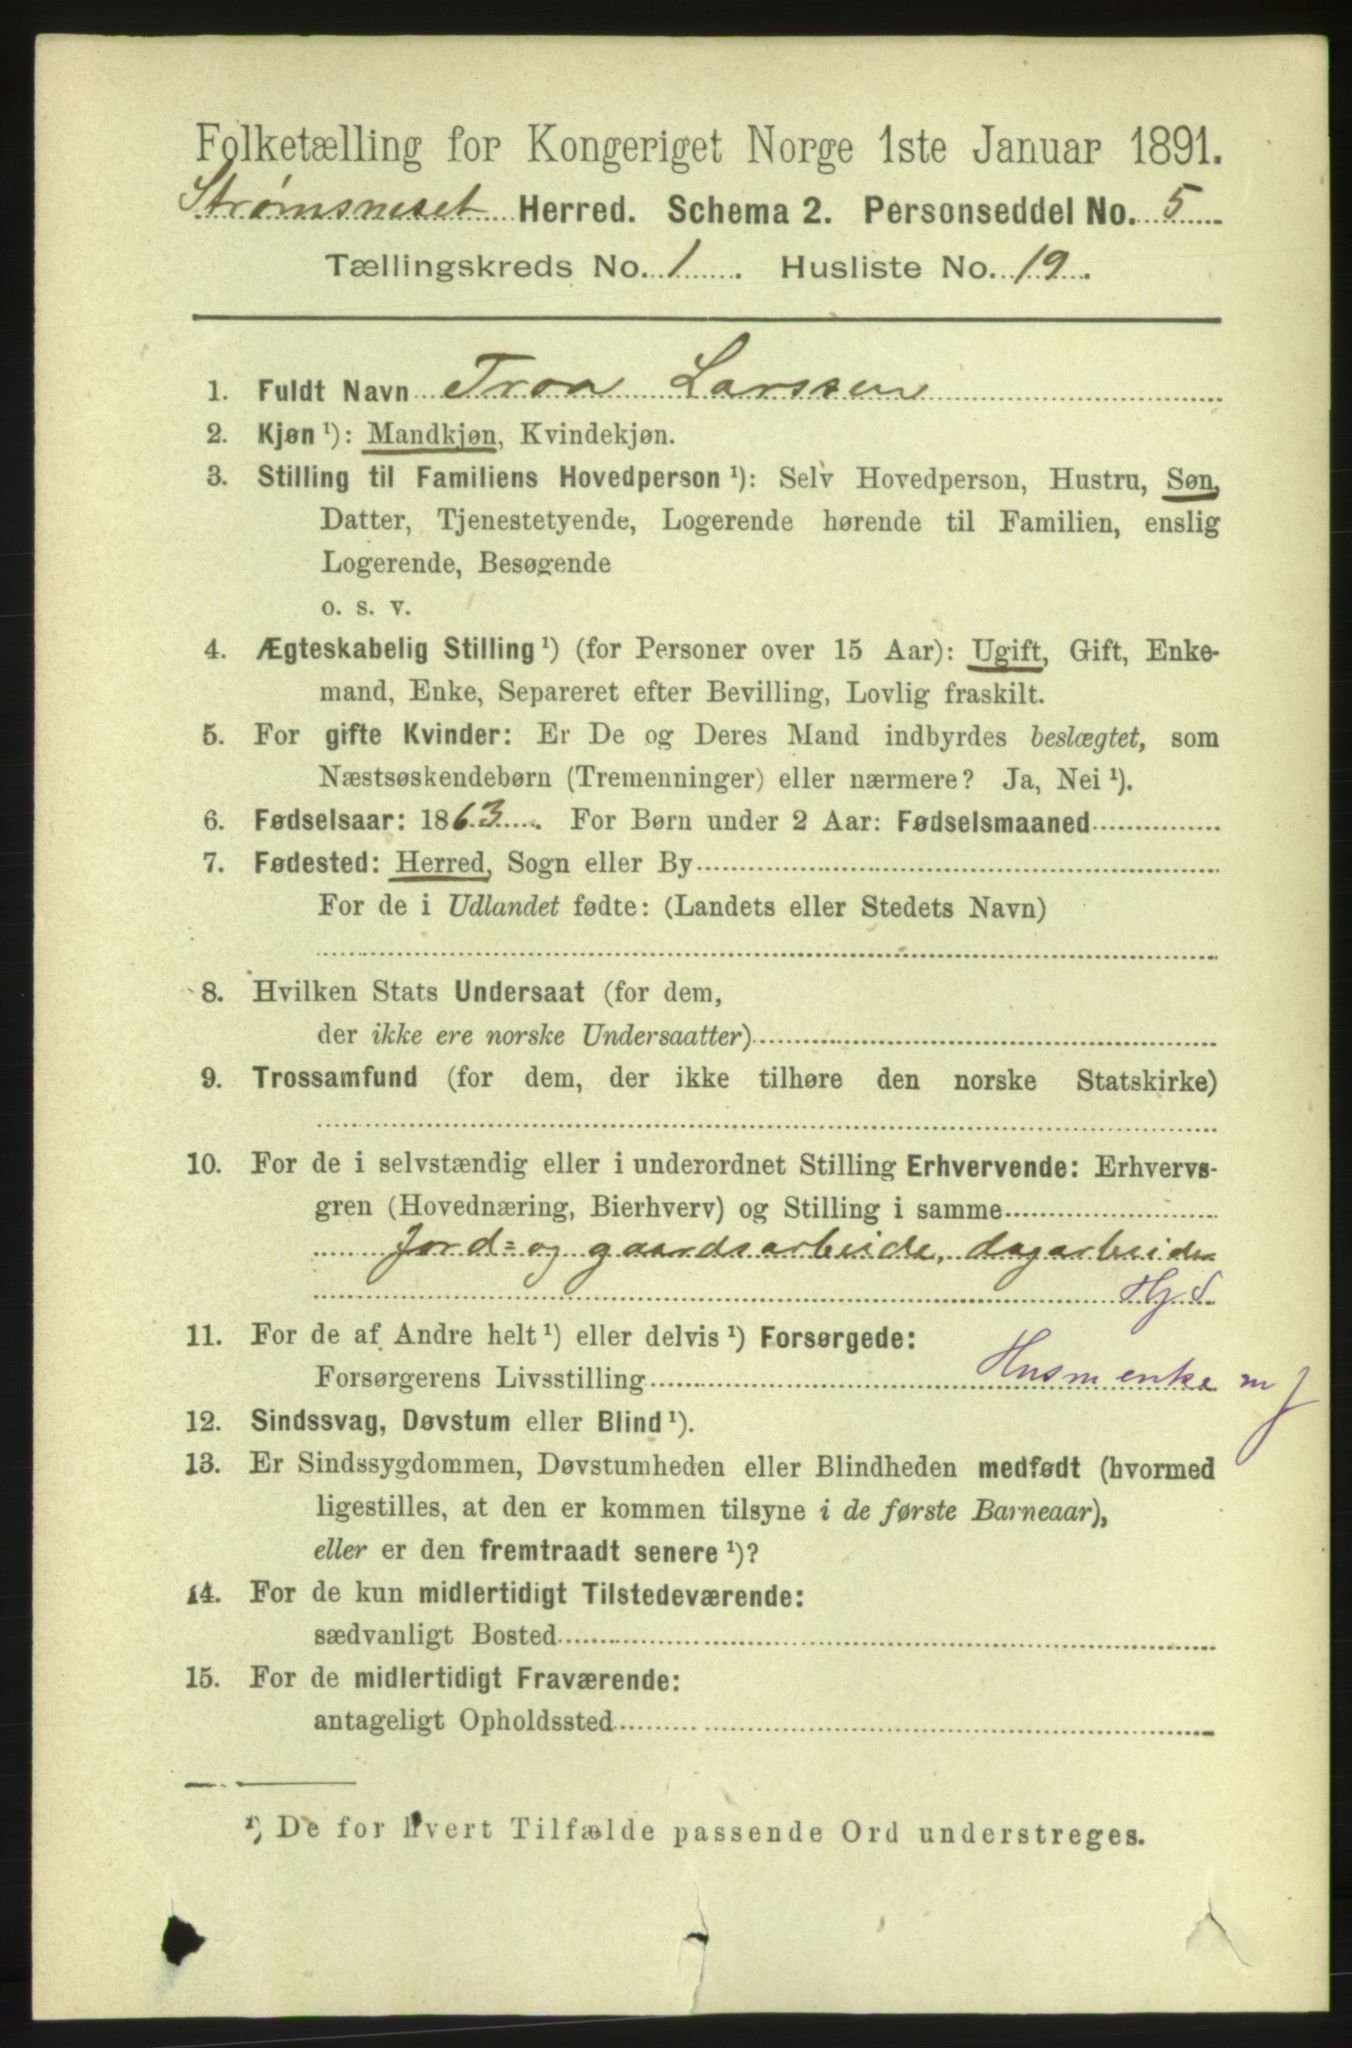 Folketælling for Kongeriget Norge 1ste Januar 1891.
Strømsneset Herred. Schema 2. Personseddel No. 5
Tællingskreds No. 1. Husliste No. 19.
1. Fuldt Navn Tron Larssen
2. Kjøn ¹): Mandkjøn, Kvindekjøn.
3. Stilling til Familiens Hovedperson ¹): Selv Hovedperson, Hustru, Søn,
Datter, Tjenestetyende, Logerende hørende til Familien, enslig
Logerende, Besøgende
o. s. v.
4. Ægteskabelig Stilling ¹) (for Personer over 15 Aar): Ugift, Gift, Enke-
mand, Enke, Separeret efter Bevilling, Lovlig fraskilt.
5. For gifte Kvinder: Er De og Deres Mand indbyrdes beslægtet, som
Næstsøskendebørn (Tremenninger) eller nærmere? Ja, Nei ¹).
6. Fødselsaar: 1863. For Børn under 2 Aar: Fødselsmaaned
7. Fødested: Herred, Sogn eller By
For de i Udlandet fødte: (Landets eller Stedets Navn)
8. Hvilken Stats Undersaat (for dem,
der ikke ere norske Undersaatter)
9. Trossamfund (for dem, der ikke tilhøre den norske Statskirke)
10. For de i selvstændig eller i underordnet Stilling Erhvervende: Erhvervs-
gren (Hovednæring, Bierhverv) og Stilling i samme
Jord- og gaardsarbeide, dagarbeider
Hj. S.
11. For de af Andre helt ¹) eller delvis ¹) Forsørgede:
Forsørgerens Livsstilling Husm enke m J
12. Sindssvag, Døvstum eller Blind ¹).
13. Er Sindssygdommen, Døvstumheden eller Blindheden medfødt (hvormed
ligestilles, at den er kommen tilsyne i de første Barneaar),
eller er den fremtraadt senere ¹)?
14. For de kun midlertidigt Tilstedeværende:
sædvanligt Bosted
15. For de midlertidigt Fraværende:
antageligt Opholdssted
¹) De for hvert Tilfælde passende Ord understreges.